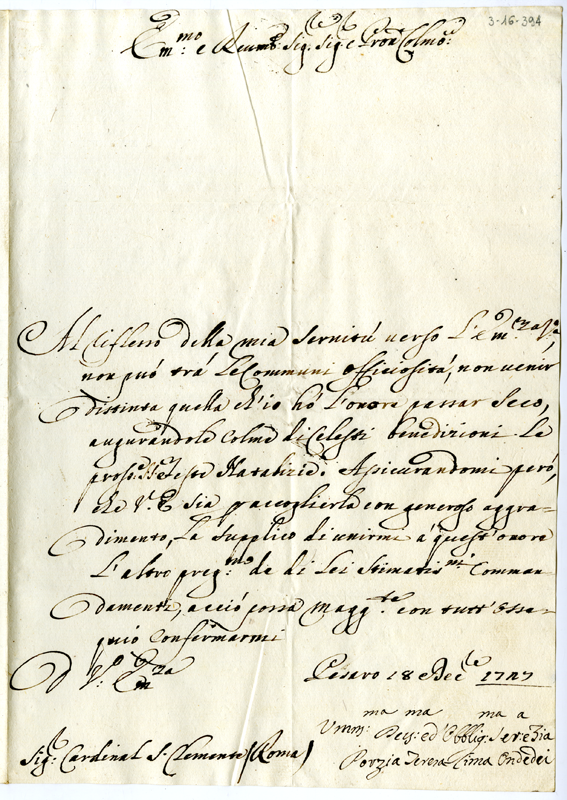 3-16-394
Em.mo e Reumo Sig.r Sig.r e Pron Colmo:
Al riflesso della mia servitú verso l'Em.za V.a,
non puó trá le communi officiositá, non venir
distinta quella ch'io hó l'onore passar seco,
augurandole colme di Celesti benedizioni le
pross.e Feste Natalizie: Assicurandomi peró,
che V.E. sia p accoglierle con generoso aggra=
dimento, la supplico di unirmi á quest'onore
l'altro preg.mo de di Lei Stimatis.mi Comman=
damenti, acció possa magg.te con tutt'osse=
quio confermarmi
D V. Em.za
Pesaro 18 Dec.le 1727
Umm:ma Deu:ma ed Obblig:ma Ser:a
Porzia Teresa Ondedei
Sig.r Cardinal S. Clemente (Roma)